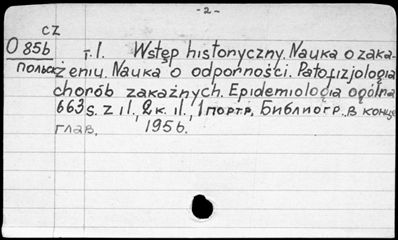 - 2 -
cz
O 85b
т. 1. Wstęp historyczny. Nauka o zaka-
польск
żeniu. Nauka o odporności. Patofizjologia
chorób zakaźnych. Epidemiologia ogólna
663 s. z il., 2 к. il., 1 портр. Библиогр. в конце
глав. 1956.